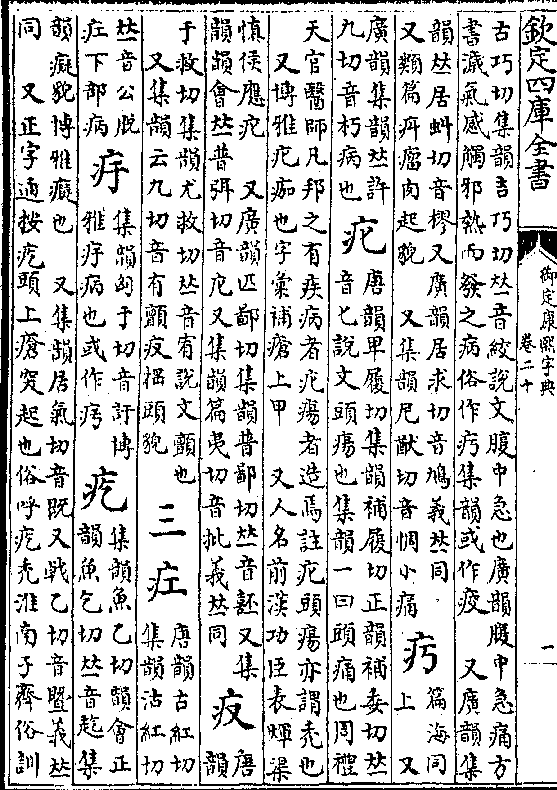 欽定四庫全書
御定康熙字典
卷二十
一
古巧切集韻吉巧切𠀤音絞說文腹中急也廣韻腹中急痛方
書濊氣感觸邪熱而發之病俗作㽱集韻或作疫 又廣韻集
韻𠀤居虯切音樛又廣韻居求切音鳩義𠀤同
又類篇病瘤肉起貌 又集韻尼猷切音惆小痛
㽱
篇海同
上 又
廣韻集韻𠀤許
九切音朽病也
疕
唐韻卑履切集韻補履切正韻補委切𠀤
音匕說文頭瘍也集韻一曰頭痛也周禮
天官醫師凡邦之有疾病者疕瘍者造焉註疕頭瘍亦謂禿也
又博雅疕痂也字彙補瘡上甲 又人名前漢功臣表煇渠
愼侯應疕 又廣韻匹鄙切集韻普鄙切𠀤音嚭又集
韻韻會𠀤普弭切音庀又集韻篇夷切音批義𠀤同
疫
唐
韻
于救切集韻尤救切𠀤音宥說文顫也
又集韻云九切音有顫疫摇頭貌
三
疘
唐韻古紅切
集韻沽紅切
𠀤音公脫
疘下部病
疛
集韻匈于切音訏博
雅疛病也或作疞
疙
集韻魚乙切韻會正
韻魚乞切𠀤音趷集
韻癡貌博雅癡也 又集韻居氣切音旣又戟乙切音暨義𠀤
同 又正字通按疙頭上瘡突起也俗呼疙禿淮南子齊俗訓